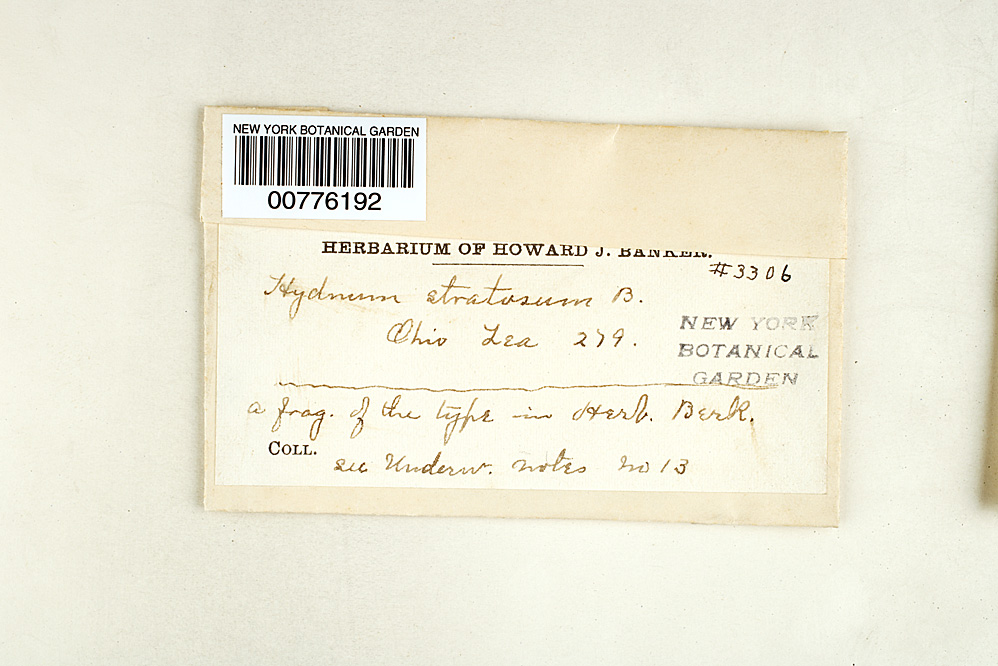 NEW YORK BOTANICAL GARDEN
00776192
HERBARIUM OF HOWARD J. BANKER.
#3306
Hydnum stratosum B.
Ohio Lea 279.
NEW YORK
BOTANICAL
GARDEN
a frag. of the type in Herb. Berk.
COLL.
see Underw. notes no 13